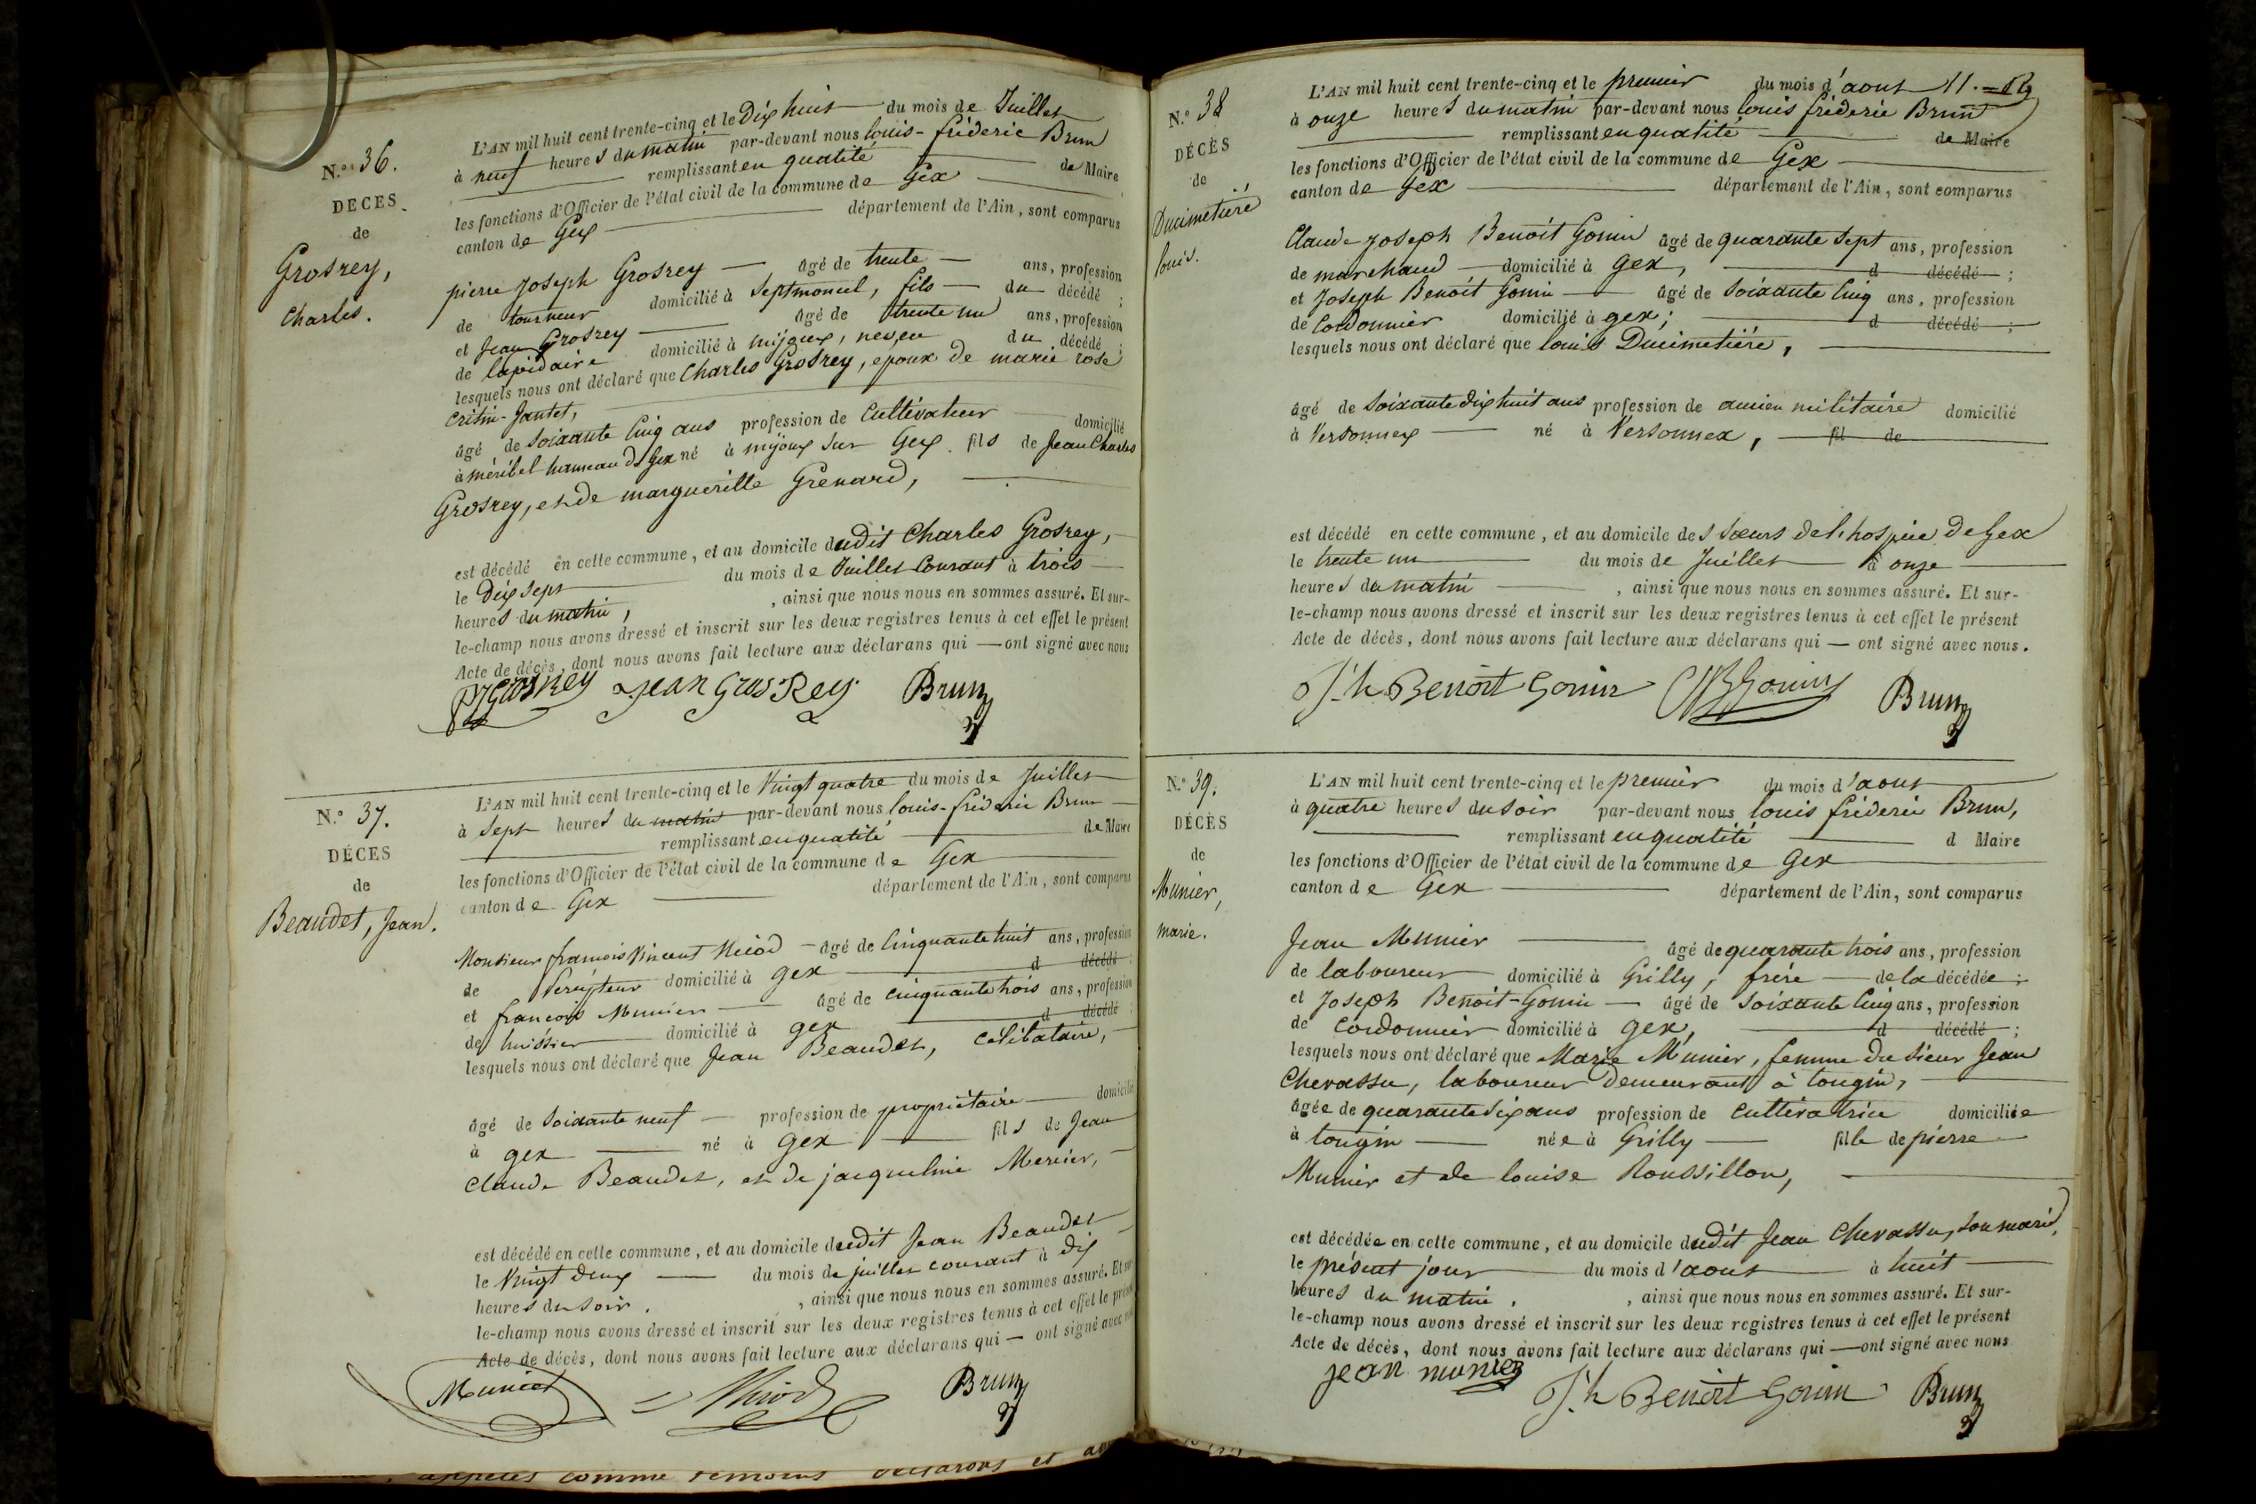 N.º 36.
DÉCÈS
de
Grosrey,
Charles.
L'AN mil huit cent trente-cinq et le Dix huit du mois de Juillet
à neuf heures du matin par-devant nous louis-fréderic Brun
remplissant en qualité de Maire
les fonctions d'Officier de l'état civil de la commune de Gex
canton de Gex département de l'Ain, sont comparus
pierre Joseph Grosrey âgé de trente ans, profession
de tourneur domicilié à Septmoncel, fils du décédé ;
et Jean Grosrey âgé de trente un ans, profession
de lapidaire domicilié à mijoux, neveu du décédé ;
lesquels nous ont déclaré que Charles Grosrey, epoux de marie rose
critin-Jantet,
âgé de Soixante Cinq ans profession de Cultivateur domicilié
à méribel hameau de Gex né à mijoux sur Gex fils de Jean Charles
Grosrey, et de marguerille Grenard,
est décédé en cette commune, et au domicile dudit Charles Grosrey,
le Dix Sept du mois de Juillet Courant à trois
heures du matin, , ainsi que nous nous en sommes assuré. Et sur-
le-champ nous avons dressé et inscrit sur les deux registres tenus à cet effet le présent
Acte de décès, dont nous avons fait lecture aux déclarans qui — ont signé avec nous
PJ Grosrey Jean Gros Rey Brun
N.º 37.
DÉCES
de
Beaudet, Jean.
L'AN mil huit cent trente-cinq et le Vingt quatre du mois de Juillet
à Sept heures du matin par-devant nous louis-fréderic Brun
remplissant en qualité de Maire
les fonctions d'Officier de l'état civil de la commune de Gex
canton de Gex département de l'Ain, sont comparus
Monsieur françois Vincent Nicod âgé de Cinquante huit ans, profession
de domicilié à Gex d décédé
et francois Munier âgé de cinquante trois ans, profession
de huissier domicilié à gex d décédé
lesquels nous ont déclaré que Jean Beaudet, célibataire,
âgé de Soixante neuf profession de propriétaire domicilié
à gex né à gex fils de Jean
Claude Beaudet, et de jacqueline Mercier,
est décédé en cette commune, et au domicile dudit Jean Beaudet
le Vingt deux du mois de juillet courant à dix
heures du Soir. , ainsi que nous nous en sommes assuré. Et sur-
le-champ nous avons dressé et inscrit sur les deux registres tenus à cet effet le présent
Acte de décès, dont nous avons fait lecture aux déclarans qui — ont signé avec nous
Munier Nicod Brun
N.º 38
DÉCÈS
de
Ducimetiére
louis.
L'AN mil huit cent trente-cinq et le premier du mois d'aout 11.
à onze heures du matin par-devant nous louis fréderic Brun
remplissant en qualité de Maire
les fonctions d'Officier de l'état civil de la commune de Gex
canton de Gex département de l'Ain, sont comparus
Claude Joseph Benoit Gonin âgé de quarante Sept ans, profession
de marchand domicilié à Gex, d décédé ;
et Joseph Benoit Gonin âgé de Soixante Cinq ans, profession
de Cordonnier domicilié à gex; d décédé ;
lesquels nous ont déclaré que louis Ducimetiére,
âgé de Soixante dix huit ans profession de ancien militaire domicilié
à Versonnex né à Versonnex, fil de
est décédé en cette commune, et au domicile des Sœurs de l'hospice de Gex
le trente un du mois de Juillet à onze
heures du matin , ainsi que nous nous en sommes assuré. Et sur-
le-champ nous avons dressé et inscrit sur les deux registres tenus à cet effet le présent
Acte de décès, dont nous avons fait lecture aux déclarans qui — ont signé avec nous.
J.h Benoit Gonin CJB Gonin Brun
N.º 39.
DÉCÈS
de
Munier,
marie.
L'AN mil huit cent trente-cinq et le premier du mois d'aout
à quatre heures du soir par-devant nous louis fréderic Brun,
remplissant en qualité d Maire
les fonctions d'Officier de l'état civil de la commune de Gex
canton de Gex département de l'Ain, sont comparus
Jean Munier âgé de quarante trois ans, profession
de laboureur domicilié à Grilly, frére de la décédée ;
et Joseph Benoit-Gonin âgé de Soixante Cinq ans, profession
de cordonnier domicilié à gex, d décédé ;
lesquels nous ont déclaré que Marie Munier, femme du Sieur Jean
Chevassu, laboureur demeurant à tougin,
âgée de quarante six ans profession de cultivatrice domiciliée
à tougin née à Grilly fille de pierre
Munier et de louise Roussillon,
est décédée en cette commune, et au domicile dudit Jean Chevassu, son mari,
le présent jour du mois d'aout à huit
heures du matin. , ainsi que nous nous en sommes assuré. Et sur-
le-champ nous avons dressé et inscrit sur les deux registres tenus à cet effet le présent
Acte de décès, dont nous avons fait lecture aux déclarans qui — ont signé avec nous
jean munier J.h Benoit Gonin Brun